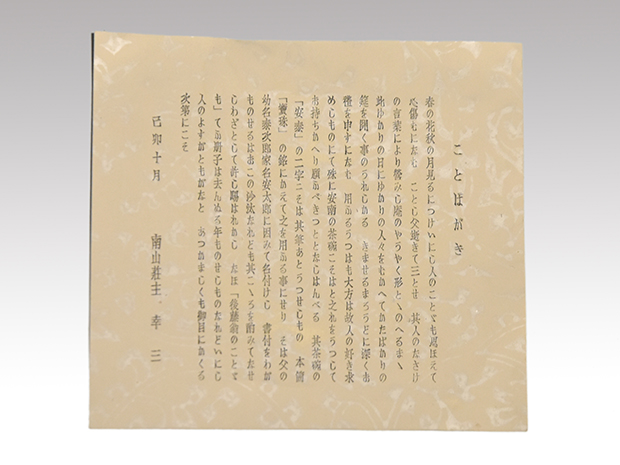 ことほがき
春の花秋の月見るにつけいにし人のことゞも思ほえて
心傷むにたも ことし父逝きて三とせ 其人のなさけ
の言葉により營みし庵のやうやく形とゝのへるまゝ
此ゆかりの日にゆかりの人々をむかへてかたばかりの
筵を開く事のうれしかる きませるまらうどに深くお
禮を申すになむ 用ふるうつはも大方は故人の好き求
めしものにて殊に安南の茶碗こそはと之れをうつして
お持ちかへり願ふべきつととなしはんべる 其茶碗の
「安泰」の二字こそは其筆あとうつせしもの 本箇
「寶珠」の銘にかへて之を用ふる事にせり そは父の
幼名泰次郎家名安太郎に因みて名付けし 書付をわが
ものせるはおこの沙汰なれども其こゝろを酌みてなせ
しわざとして許し賜はれかし なほ「後藤翁のことど
も」てふ册子は去んぬる年ものせしものなれどいにし
人のよすがともがなと あつかましくも御目にかくる
次第にこそ
己卯十月 南山莊主 幸三